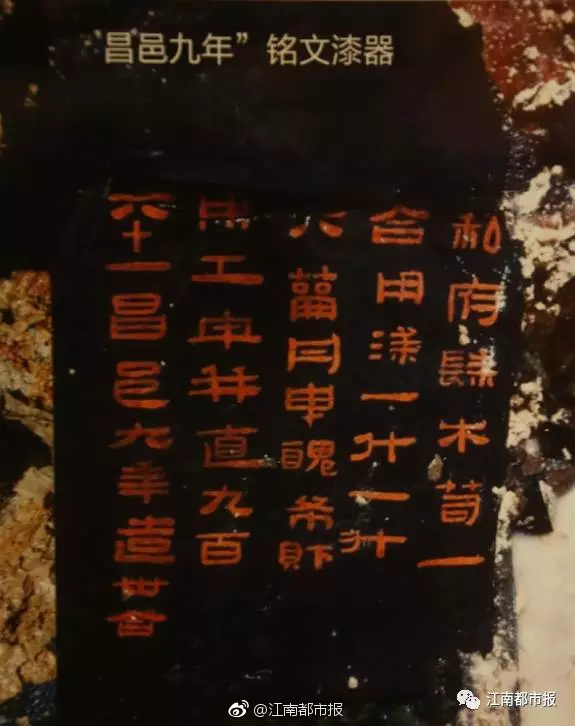 “昌邑九年”铭文漆器
私府髹木笥一
合用漆一斗一升
六籥丹臾丑布財
用工牢并直九百
六十一昌邑九年造卅合
@江南都市报
江南都市报